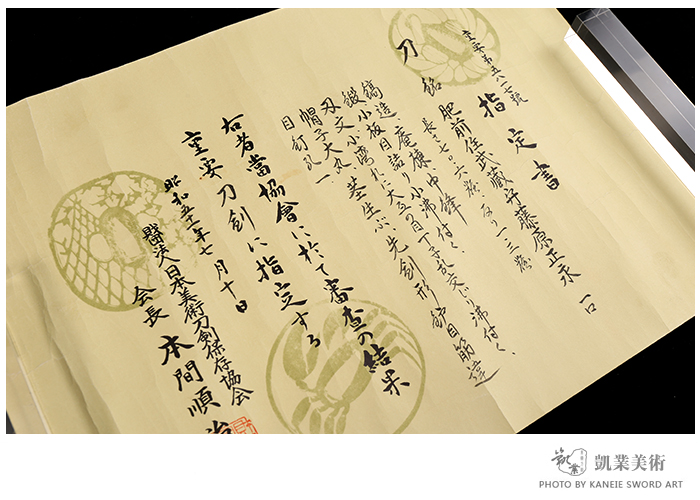 重要第五八七號
指定書
刀 銘 肥前住武藏守藤原正永 一口
長二尺二寸七分六糎 反り一三糎
鎬造 庵棟 中鋒
鍛 小板目詰り 小沸付く
刃文 小湾れに大互の目丁子乱交じり 沸付く
帽子 大丸 茎 生ぶ 先剣形 鑢目筋違
目釘孔 一
右者當協會に於て審査の結果
重要刀剣に指定する
昭和五十一年七月十日
財団法人日本美術刀剣保存協会
会長 本間順治
凱業美術
PHOTO BY KANEIE SWORD ART